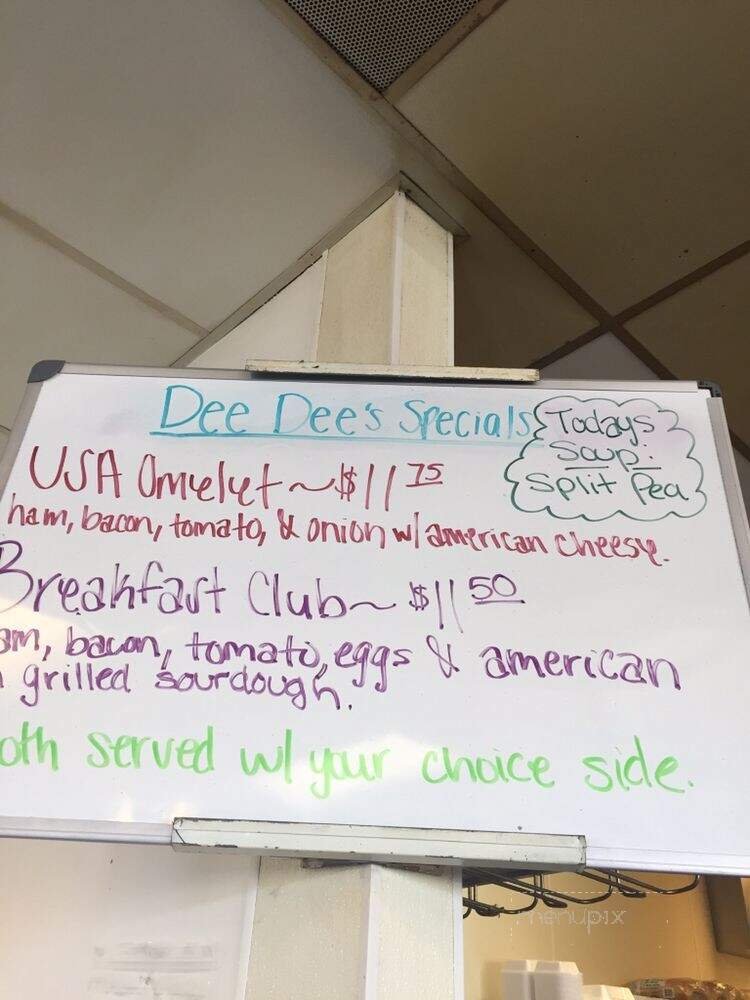 Dee Dee's Specials
Todays
Soup:
Split Pea
USA Omelet ~ $11 75
ham, bacon, tomato, & onion w/ american cheese.
Breakfast Club ~ $11 50
am, bacon, tomato, eggs & american
grilled sourdough.
oth served w/ your choice side.
menupix